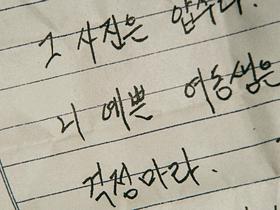 그 사진은 압수다.
니 예쁜 여동생은
걱정마라.